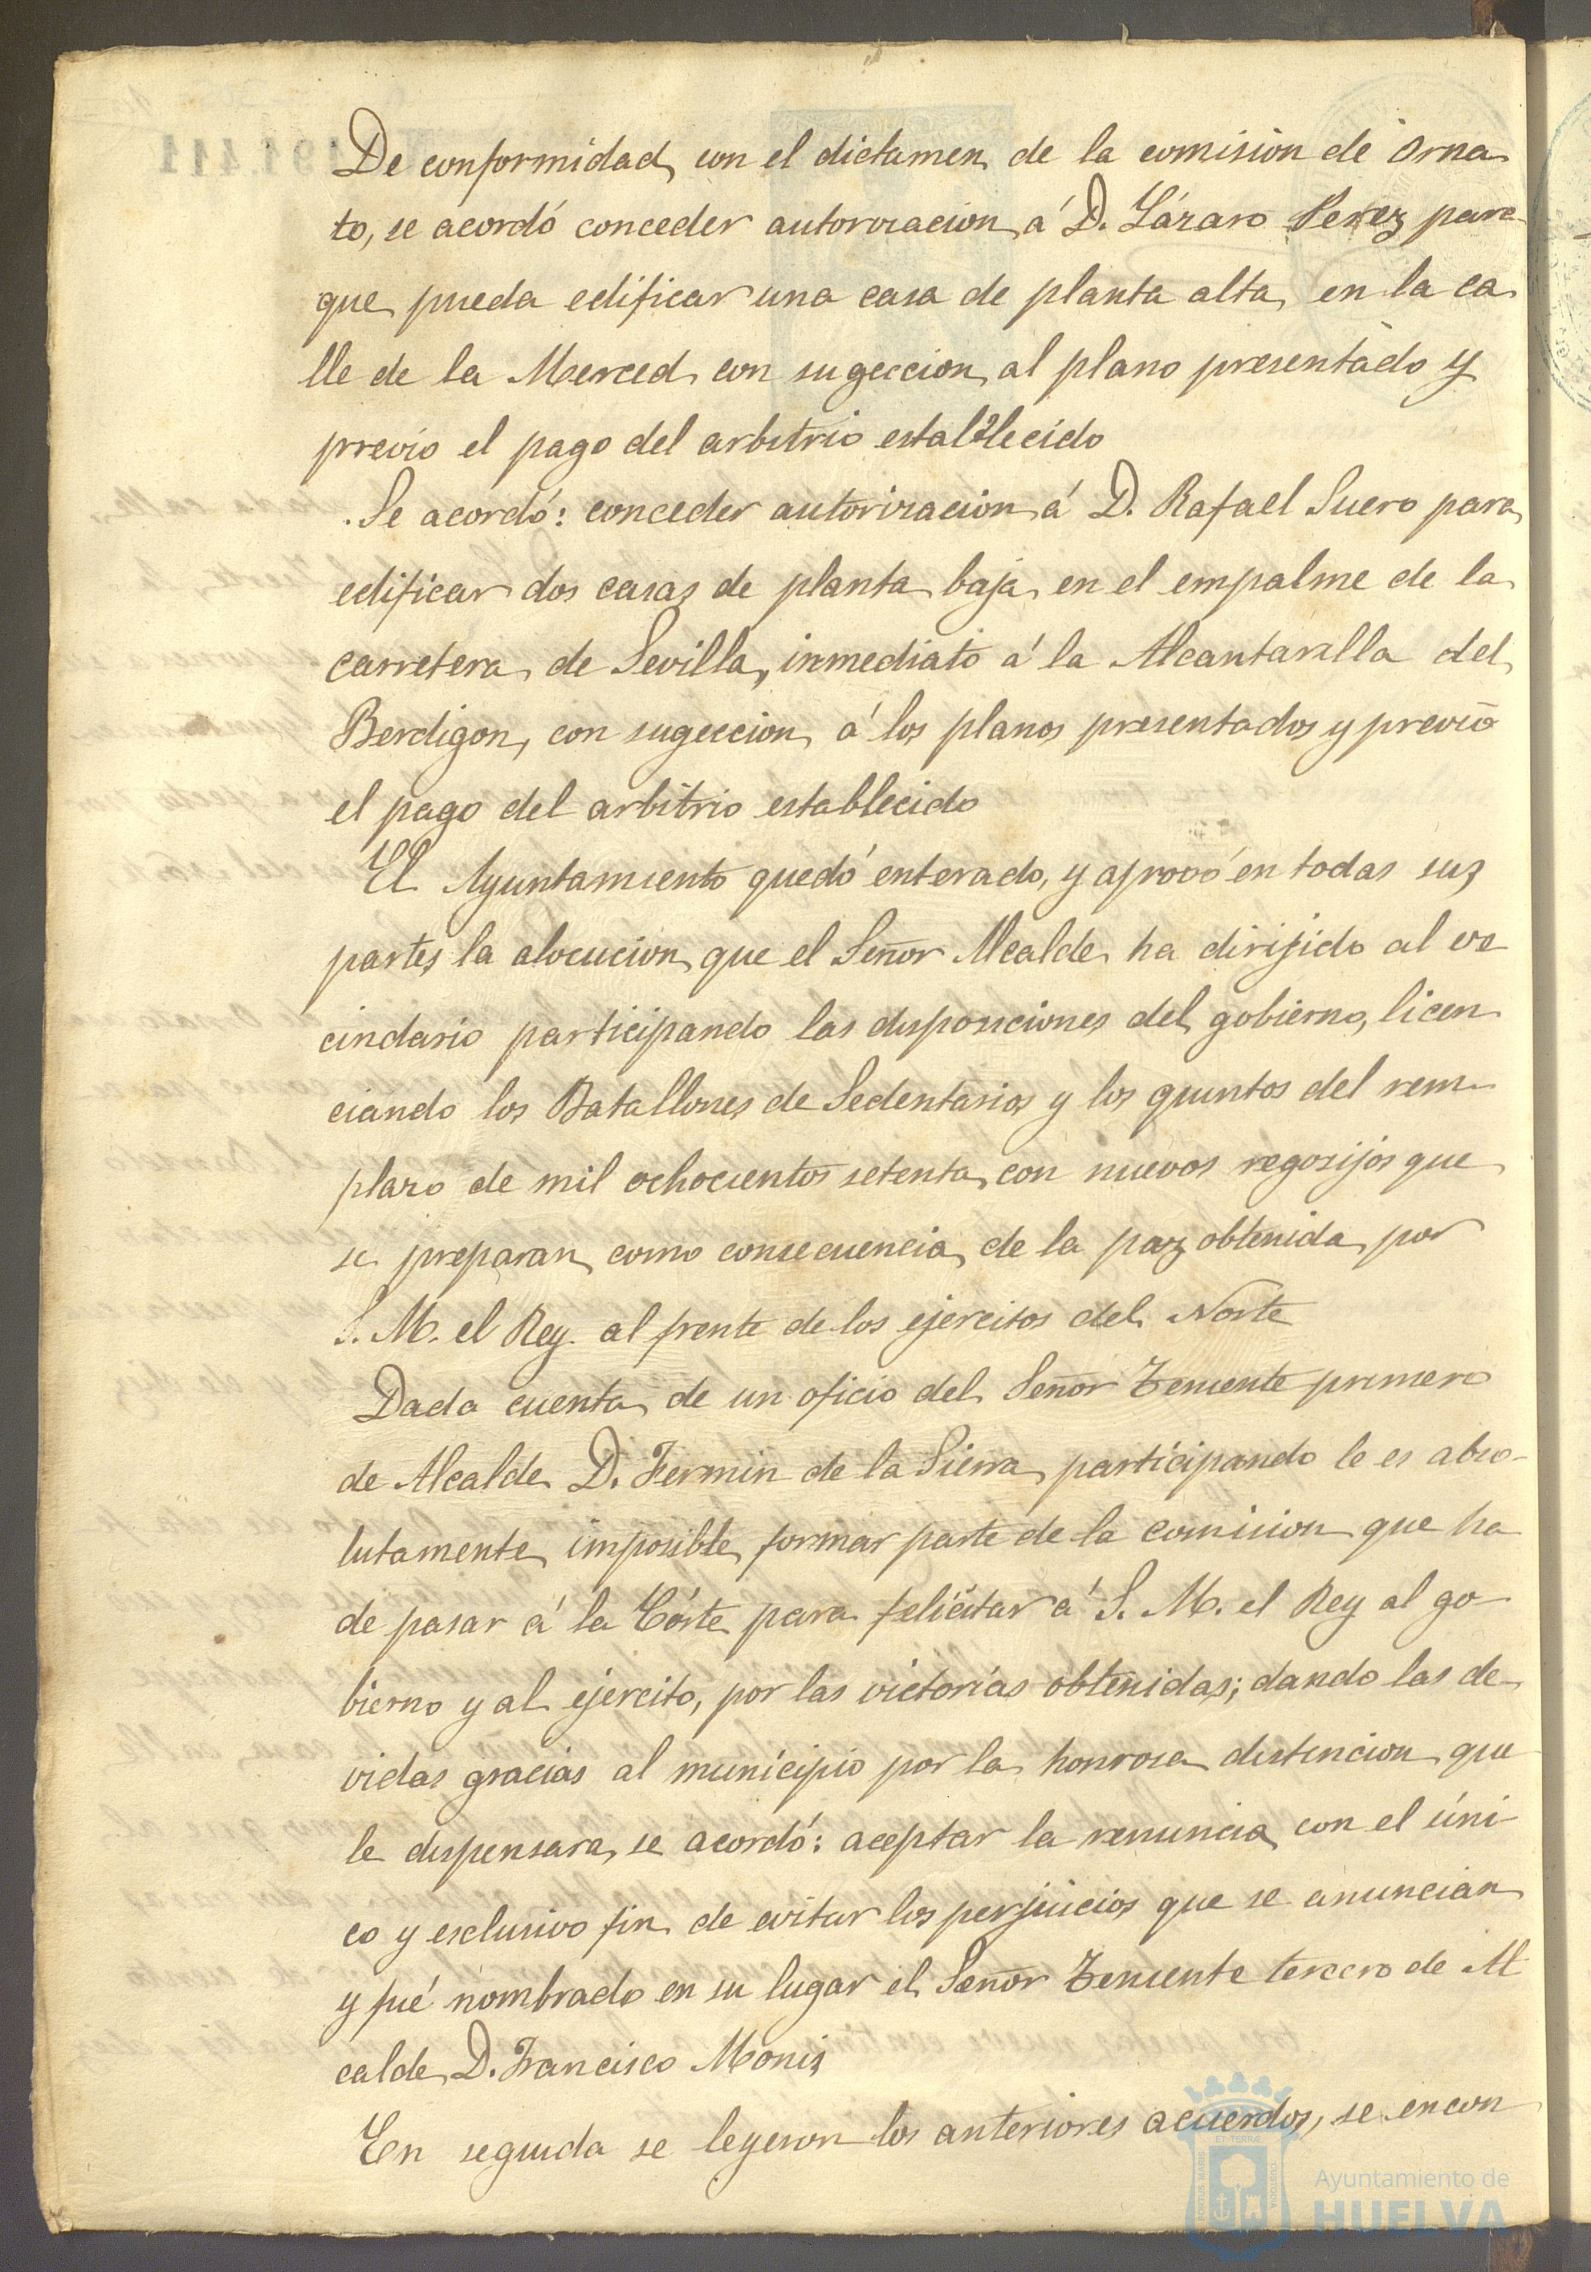 De conformidad con el dictamen de la comision de Orna
to, se acordó conceder autorizacion á D. Lázaro Perez para
que pueda edificar una casa de planta alta en la ca
lle de la Merced con sugeccion al plano presentado y
previo el pago del arbitrio establecido
Se acordó: conceder autorizacion á D. Rafael Suero para
edificar dos casas de planta baja en el empalme de la
carretera de Sevilla, inmediato á la Alcantarilla del
Berdigon, con sugeccion á los planos presentados y previo
el pago del arbitrio establecido
El Ayuntamiento quedó enterado, y aprovó en todas sus
partes la alocucion que el Señor Alcalde ha dirijido al ve
cindario participando las disposiciones del gobierno, licen
ciando los Batallones de Sedentarios y los quintos del rem-
plazo de mil ochocientos setenta, con nuevos regosijos que
se preparan como consecuencia de la paz obtenida por
S. M. el Rey. al frente de los ejercitos del Norte
Dada cuenta de un oficio del Señor Teniente primero
de Alcalde D. Fermin de la Sierra participando le es abso-
lutamente imposible formar parte de la comision que ha
de pasar á la Córte para felicitar á S. M. el Rey al go-
bierno y al ejercito, por las victorias obtenidas; dando las de-
vidas gracias al municipio por la honrosa distincion que
le dispensara, se acordó: aceptar la renuncia con el úni-
co y esclusivo fin de evitar los perjuicios que se anuncian
y fué nombrado en su lugar el Señor Teniente tercero de Al
calde D. Francisco Monis
En seguida se leyeron los anteriores acuerdos, se encon
Ayuntamiento de
HUELVA